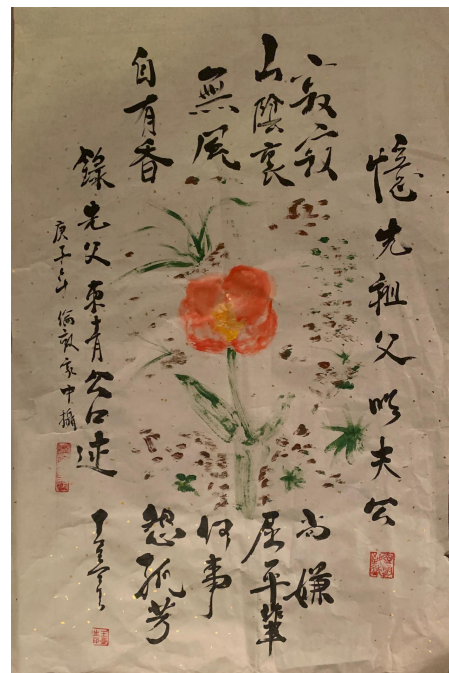 憶先祖父夫公
寂寂
山陰裏
無風
自有香
尚嫌
屈平輩
何事
恐孤芳
錄先父東青公口述
庚子年倫敦家中